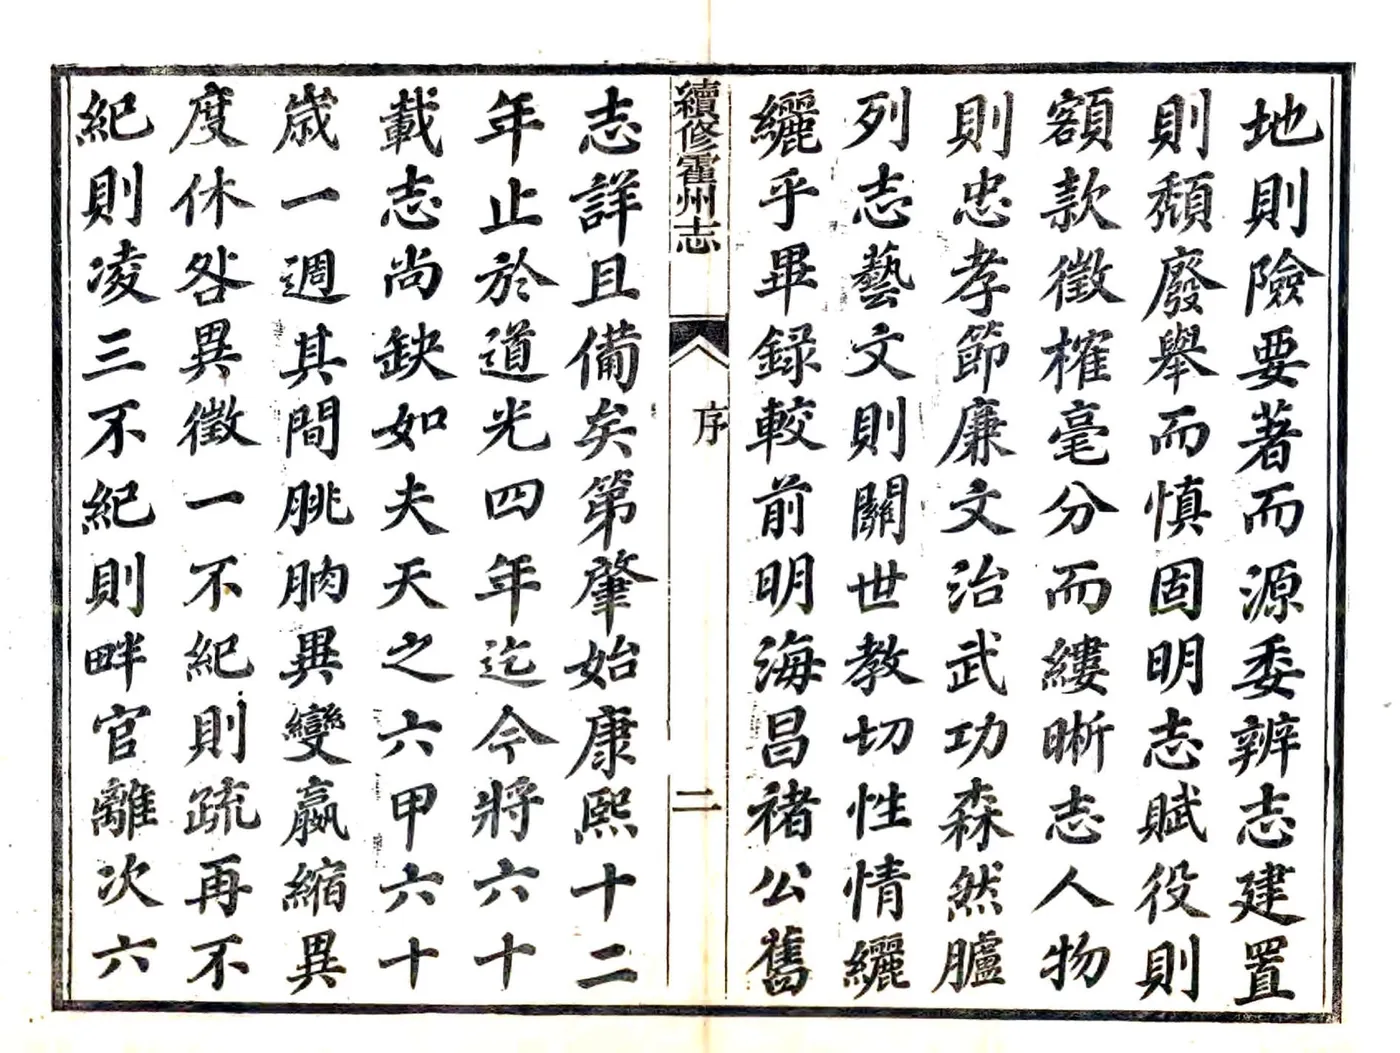 地則險要著而源委辨志建置
則頹廢舉而慎固明志賦役則
額款徵榷毫分而縷晰志人物
則忠孝節廉文治武功森然臚
列志藝文則關世教切性情纚
纚乎畢録較前明海昌褚公舊
續修霍州志
序
二
志詳且備矣第肇始康熙十二
年止於道光四年迄今將六十
載志尚缺如夫天之六甲六十
歲一週其間朓朒異變贏縮異
度休咎異徵一不紀則疏再不
紀則凌三不紀則畔官離次六